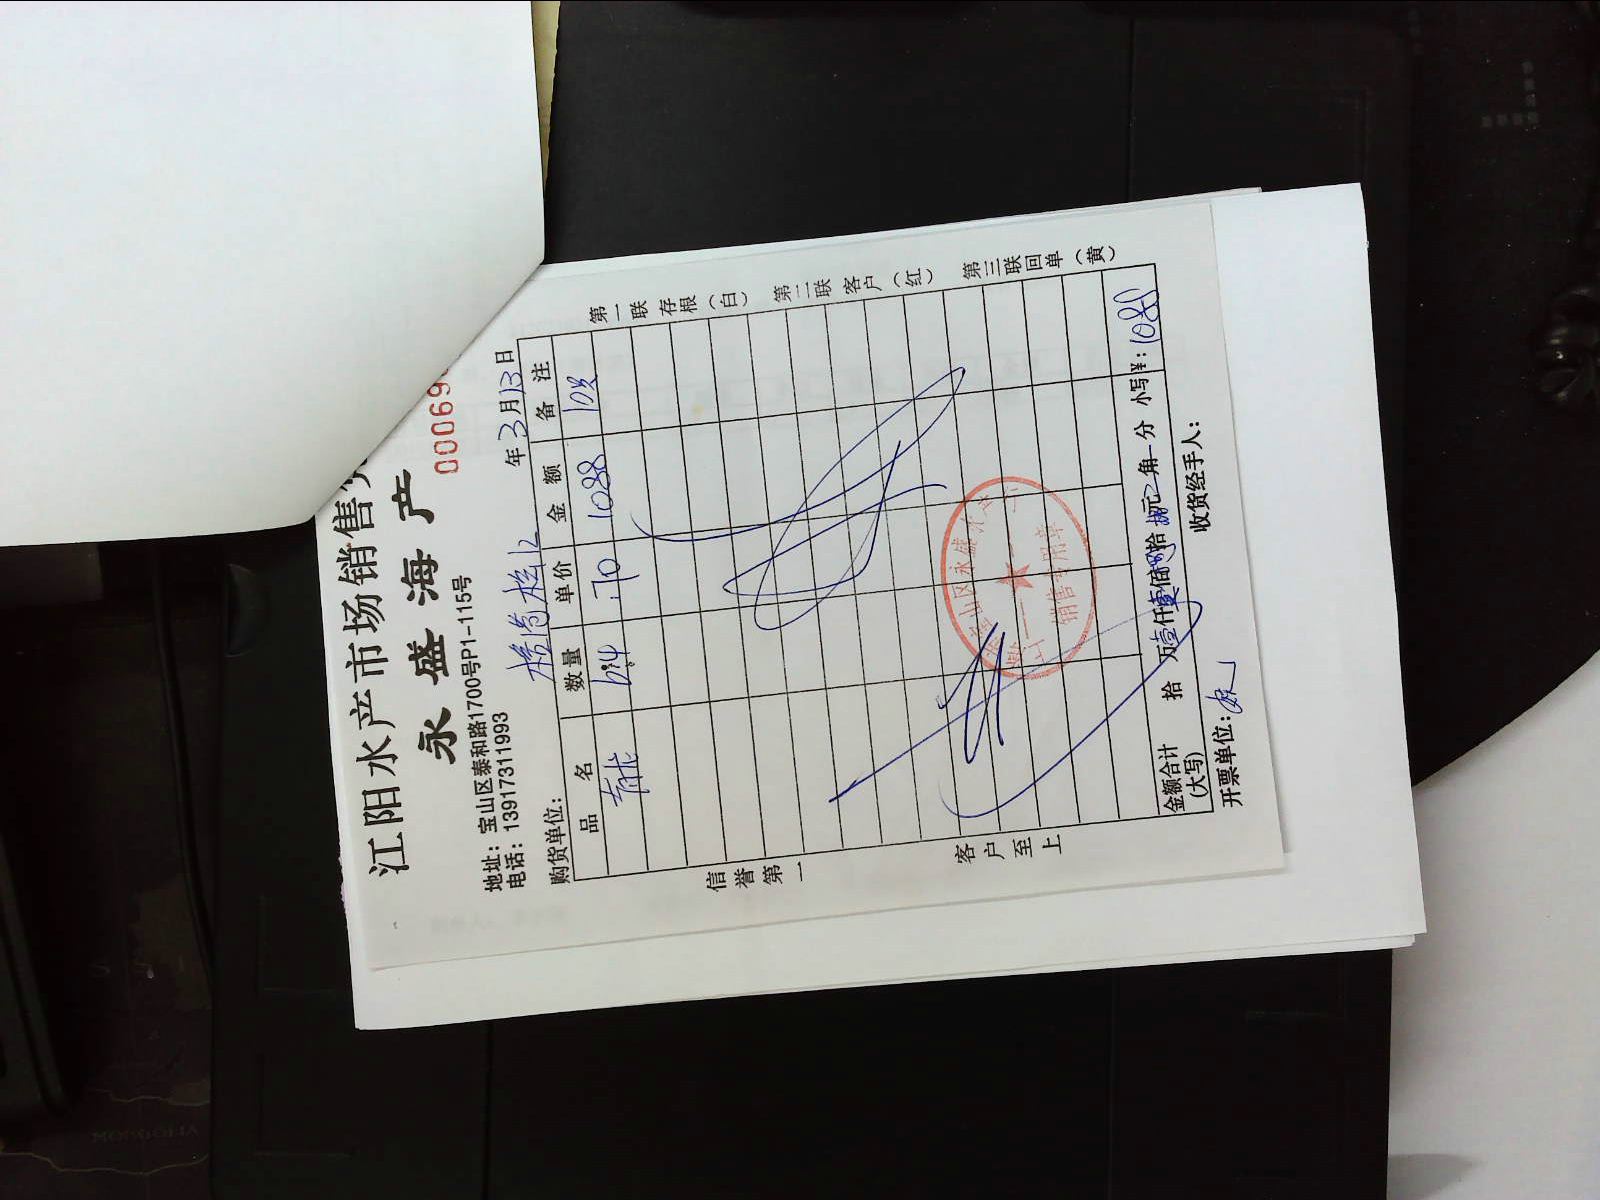 江阳水产市场销售
永盛海产
00069
地址：宝山区泰和路1700号P1-115号
电话：13917311993
购货单位：
年3月13日
品名 数量 单价 金额 备注
.70 1088
第一联存根（白） 第二联客户（红） 第三联回单（黄）
信誉第一 客户至上
销售专用章
金额合计（大写） 拾 万壹仟 佰 拾 元 角 分 小写¥：1088
开票单位： 收货经手人：